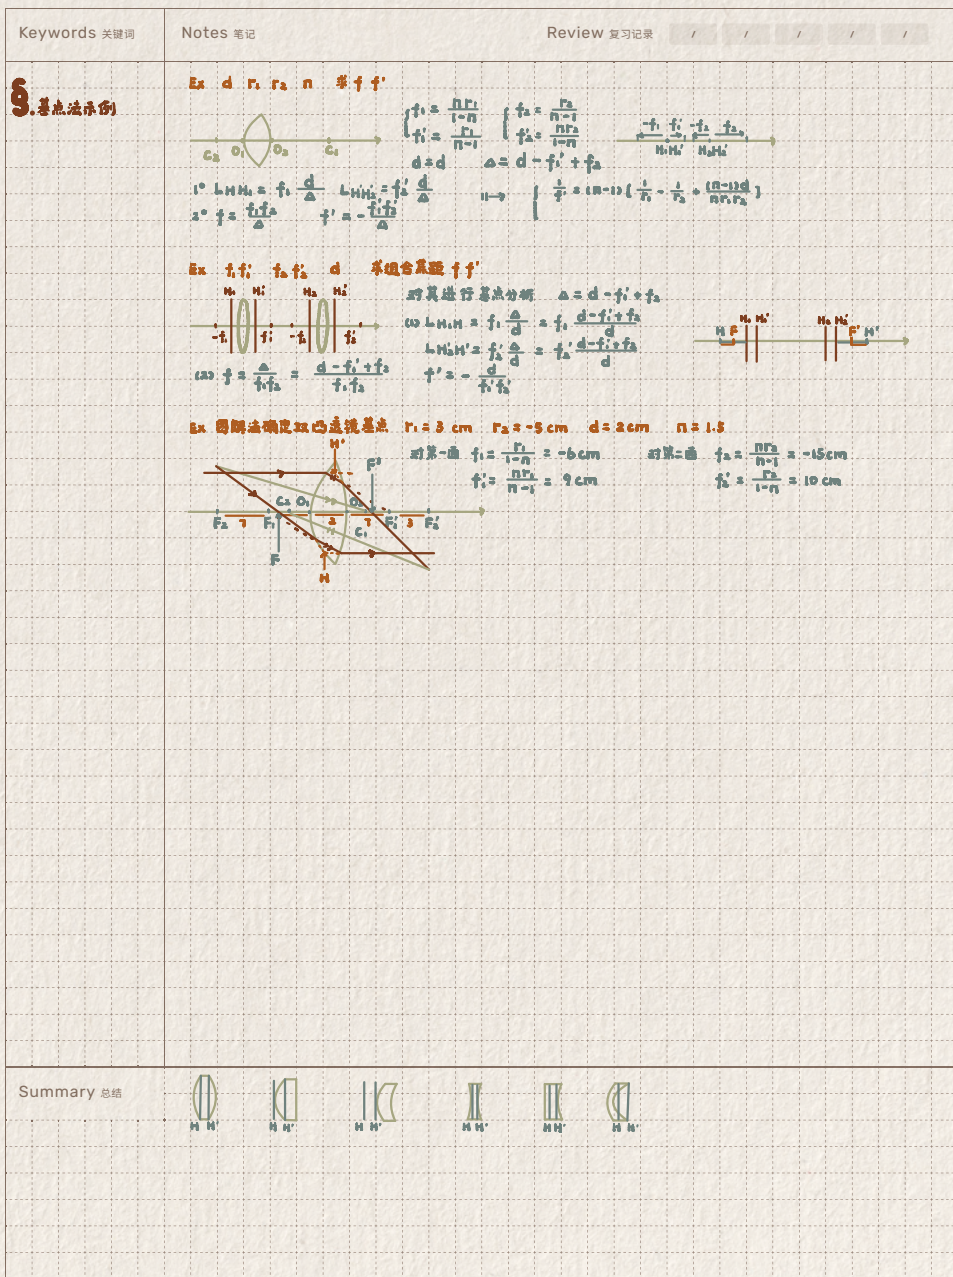 Keywords 关键词
Notes 笔记
Review 复习记录 / / / / /
§.基点法示例
Ex d r₁ r₂ n 求 f f'
C₂ O₁ O₂ C₁
f₁ = nr₁/(1-n)
f₁' = r₁/(n-1)
f₂ = r₂/(n-1)
f₂' = nr₂/(1-n)
d = d Δ = d - f₁' + f₂
-f₁ f₁' -f₂ f₂'
H₁H₁' H₂H₂'
1° LHH₁ = f₁ d/Δ LH₂'H' = f₂' d/Δ
2° f = f₁f₂/Δ f' = - f₁'f₂'/Δ
1/f' = (n-1)[1/r₁ - 1/r₂ + (n-1)d/nr₁r₂]
Ex f₁f₁' f₂f₂' d 求组合焦距 f f'
H₁ H₁' H₂ H₂'
-f₁ f₁' -f₂ f₂'
对其进行基点分析 Δ = d - f₁' + f₂
(1) LH₁H = f₁ Δ/d = f₁ (d - f₁' + f₂)/d
LH₂'H' = f₂' Δ/d = f₂' (d - f₁' + f₂)/d
H F H₁ H₁' H₂ H₂' F' H'
(2) f = Δ/f₁f₂ = (d - f₁' + f₂)/f₁f₂
f' = - d/f₁'f₂'
Ex 图解法确定双凸透镜基点 r₁ = 3 cm r₂ = -5 cm d = 2 cm n = 1.5
对第一面 f₁ = r₁/(1-n) = -6 cm
f₁' = nr₁/(n-1) = 9 cm
对第二面 f₂ = nr₂/(n-1) = -15 cm
f₂' = r₂/(1-n) = 10 cm
H' F'
C₂ O₁ O₂
F₂ 7 F₁ 2 7 F₁' 3 F₂'
C₁
F
H
Summary 总结
H H' H H' H H' H H' H H' H H'